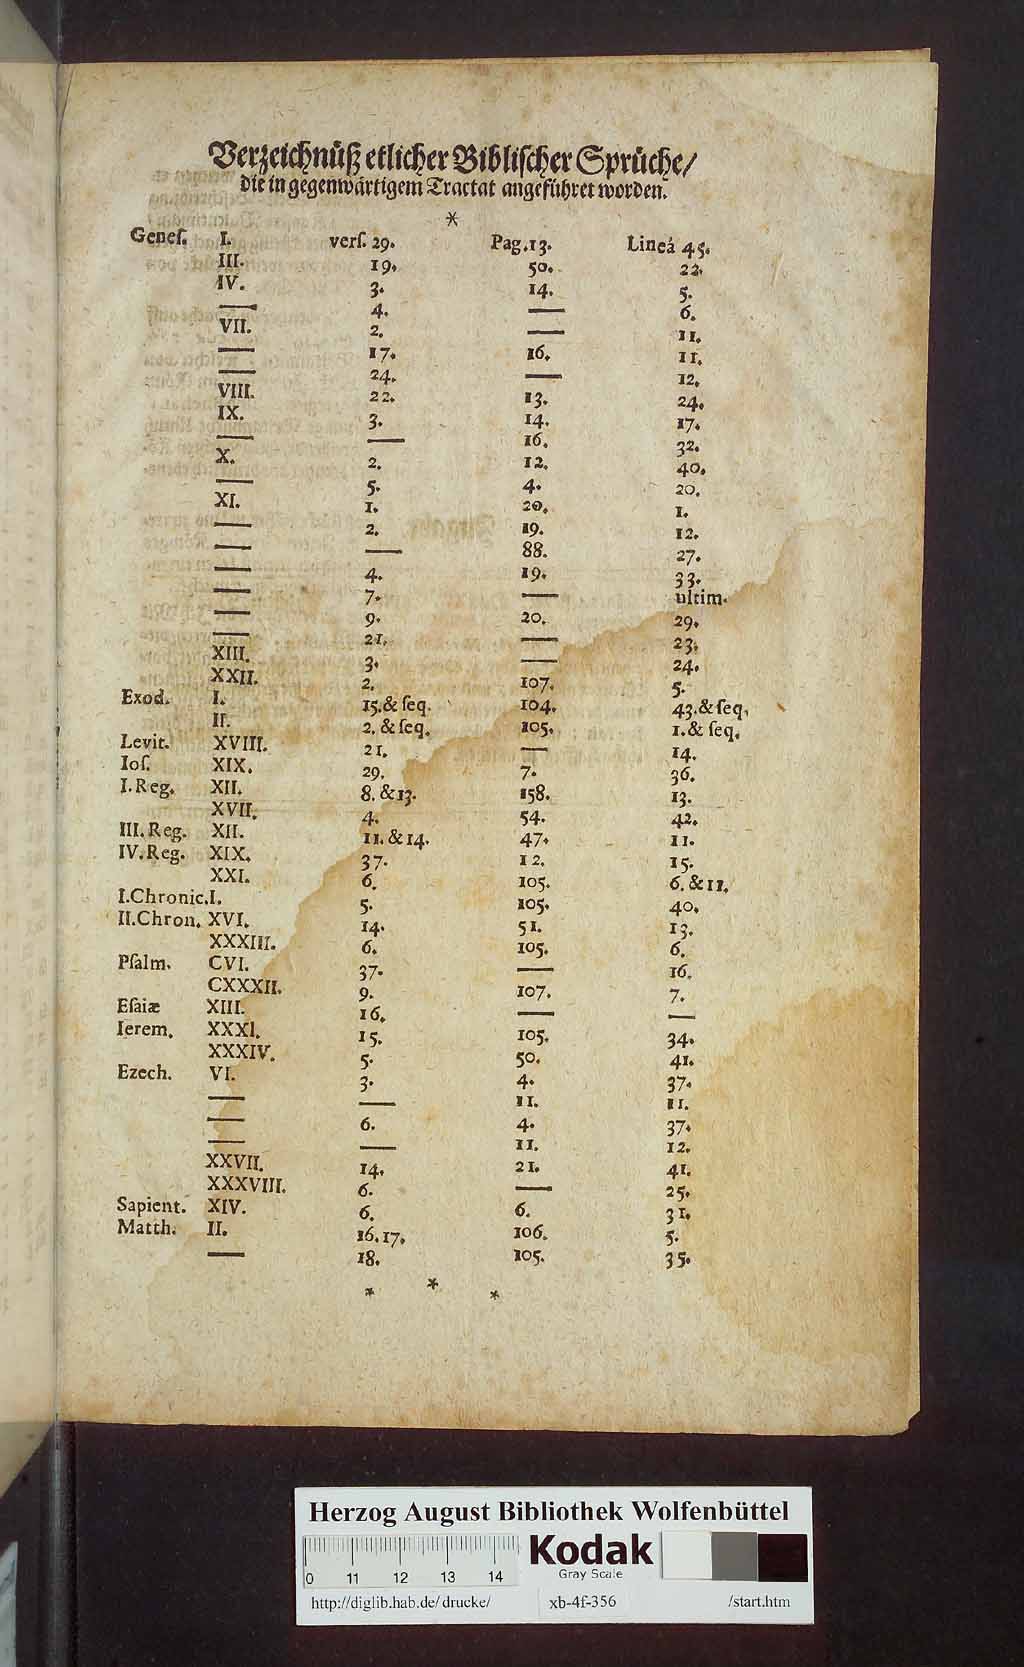 Verzeichnüß etlicher Biblischer Sprüche/
die in gegenwärtigem Tractat angeführet worden.
*
Genes. I. vers. 29. Pag. 13. Lineâ 45.
III. 19. 50. 22.
IV. 3. 14. 5.
— 4. — 6.
VII. 2. — 11.
— 17. 16. 11.
— 24. — 12.
VIII. 22. 13. 24.
IX. 3. 14. 17.
— — 16. 32.
X. 2. 12. 40.
— 5. 4. 20.
XI. 1. 20. 1.
— 2. 19. 12.
— — 88. 27.
— 4. 19. 33.
— 7. — ultim.
— 9. 20. 29.
— 21. — 23.
XIII. 3. — 24.
XXII. 2. 107. 5.
Exod. I. 15. & seq. 104. 43. & seq.
II. 2. & seq. 105. 1. & seq.
Levit. XVIII. 21. — 14.
Ios. XIX. 29. 7. 36.
I. Reg. XII. 8. & 13. 158. 13.
XVII. 4. 54. 42.
III. Reg. XII. 11. & 14. 47. 11.
IV. Reg. XIX. 37. 12. 15.
XXI. 6. 105. 6. & 11.
I. Chronic. I. 5. 105. 40.
II. Chron. XVI. 14. 51. 13.
XXXIII. 6. 105. 6.
Psalm. CVI. 37. — 16.
CXXXII. 9. 107. 7.
Esaiæ XIII. 16. — —
Ierem. XXXI. 15. 105. 34.
XXXIV. 5. 50. 41.
Ezech. VI. 3. 4. 37.
— — 11. 11.
— 6. 4. 37.
— — 11. 12.
XXVII. 14. 21. 41.
XXXVIII. 6. — 25.
Sapient. XIV. 6. 6. 31.
Matth. II. 16. 17. 106. 5.
— 18. 105. 35.
* * *
Herzog August Bibliothek Wolfenbüttel
0 11 12 13 14
Kodak
Gray Scale
http://diglib.hab.de/drucke/ xb-4f-356 /start.htm